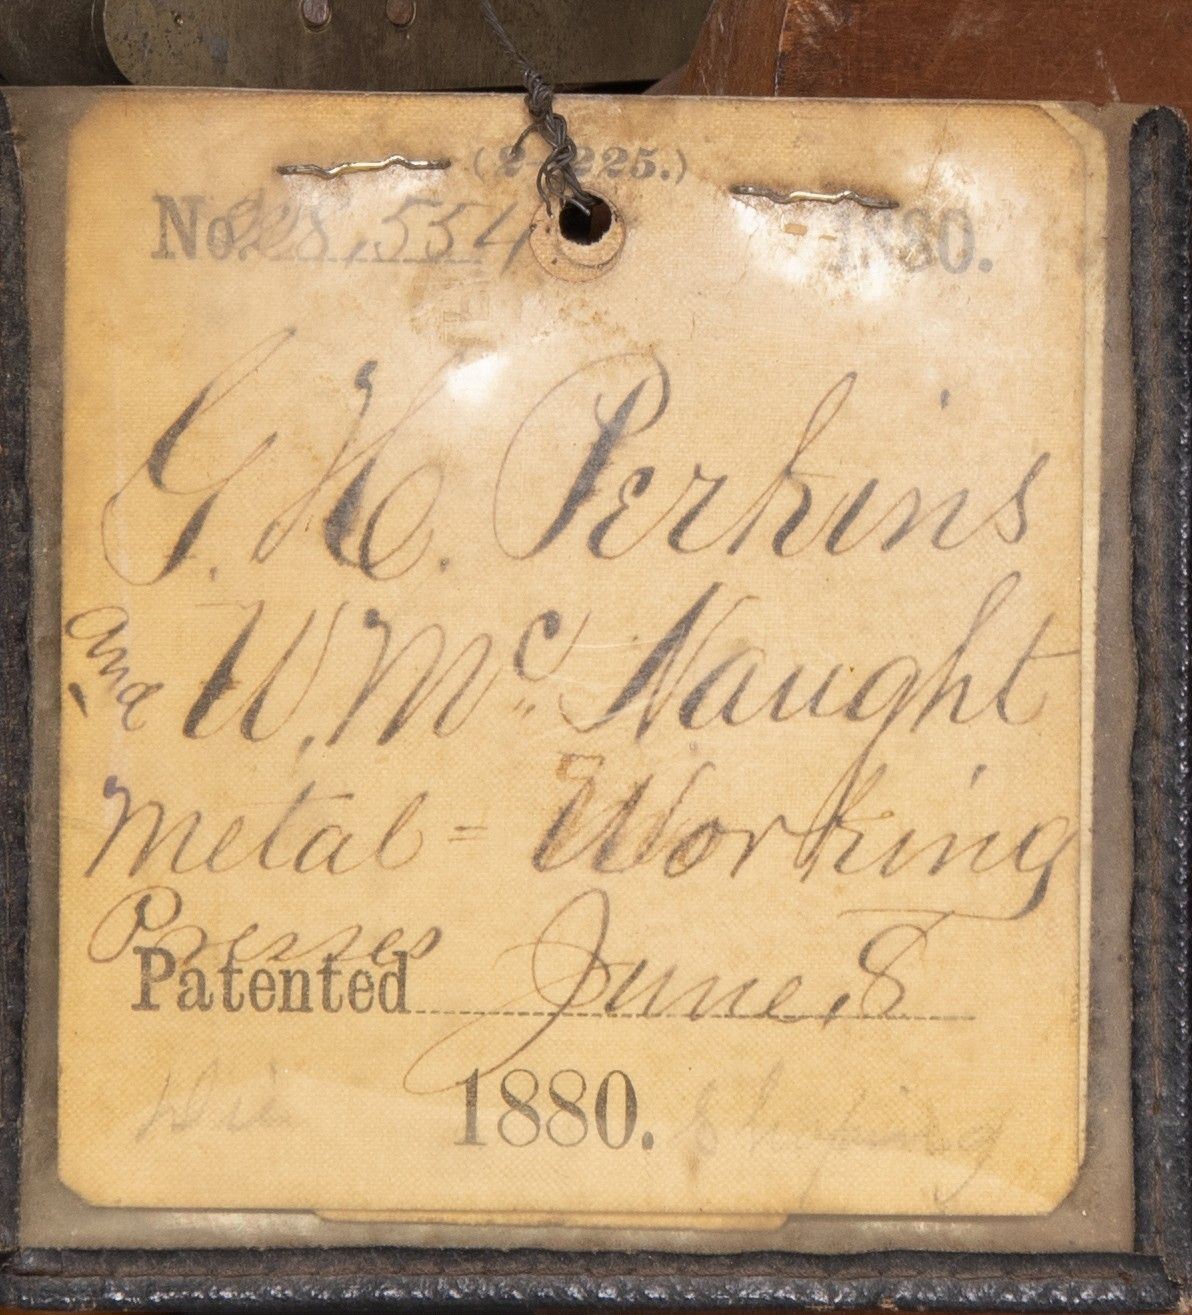 (2-225.)
No. 228,554. 1880.
G. H. Perkins
and W. Mc. Naught
Metal = Working
Presses
Patented June, 8
1880.
Die Shaping